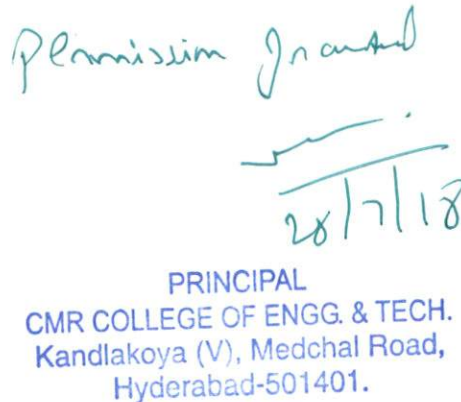 Permission Granted
28/7/18
PRINCIPAL
CMR COLLEGE OF ENGG. & TECH.
Kandlakoya (V), Medchal Road,
Hyderabad-501401.